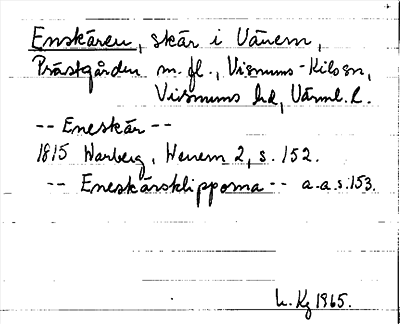 Enskären, skär i Vänern,
Prästgården m.fl., Visnums-Kils sn,
Visnums hd, Värml. l.
-- Eneskär --
1815 Warberg, Wenern 2, s. 152.
-- Eneskärsklipporna -- a.a.s. 153.
L. Kg 1965.